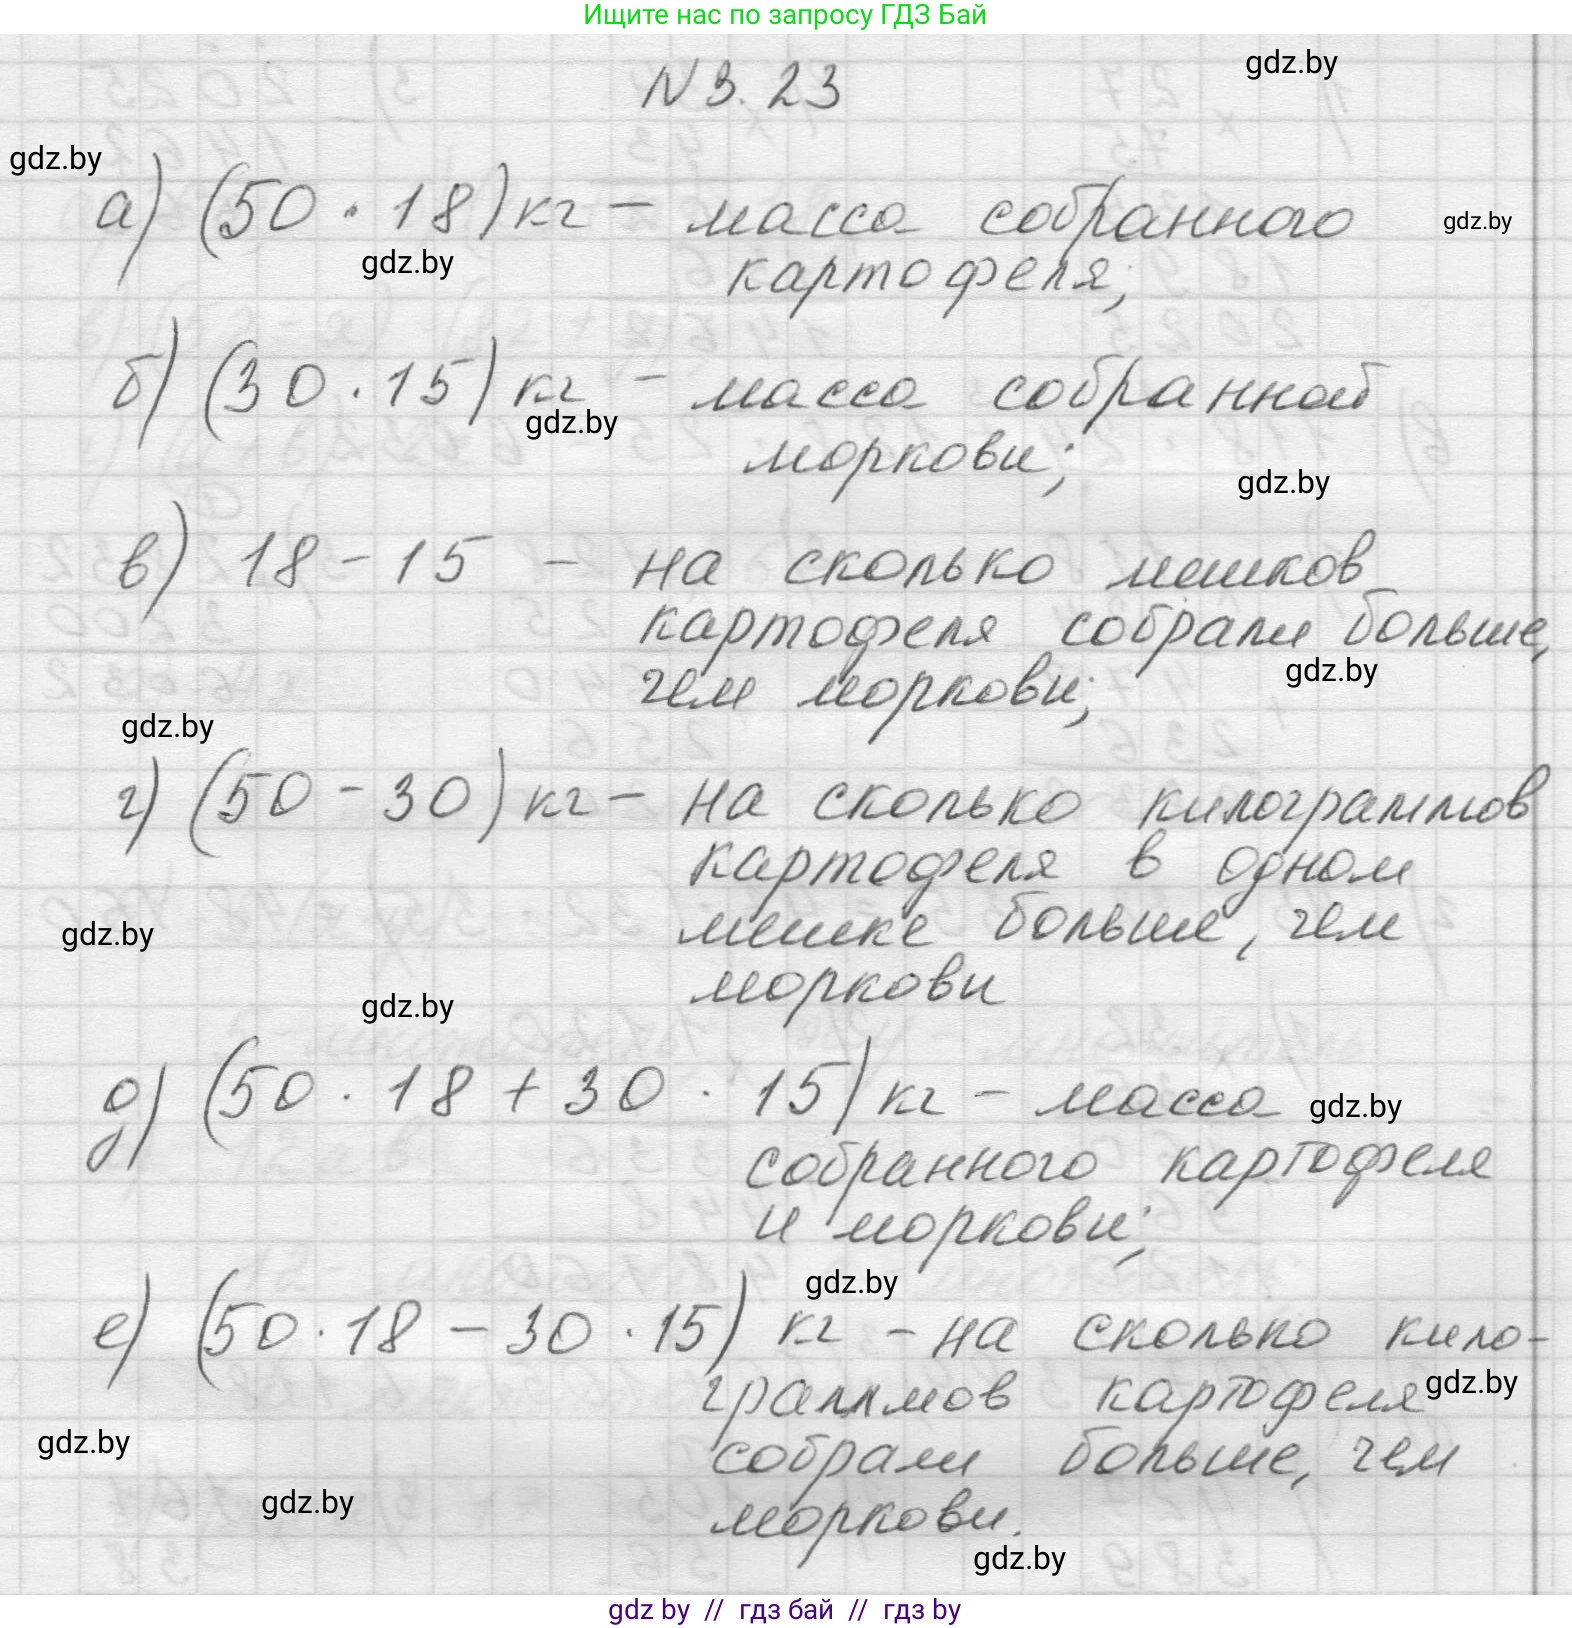 Ищите нас по запросу ГДЗ Бай
gdz.by
N 3. 23
gdz.by
а) (50 · 18) кг – масса собранного
gdz.by
gdz.by
картофеля;
б) (30 · 15) кг – масса собранной
gdz.by
моркови;
gdz.by
в) 18 – 15 – на сколько мешков
картофеля собрали больше,
gdz.by
чем моркови;
gdz.by
г) (50 – 30) кг – на сколько килограммов
картофеля в одном
gdz.by
мешке больше, чем
моркови
gdz.by
д) (50 · 18 + 30 · 15) кг – масса
gdz.by
собранного картофеля
и моркови;
gdz.by
е) (50 · 18 – 30 · 15) кг – на сколько кило-
граммов картофеля
gdz.by
gdz.by
собрали больше, чем
gdz.by
моркови.
gdz.by
gdz by // гдз бай // гдз by